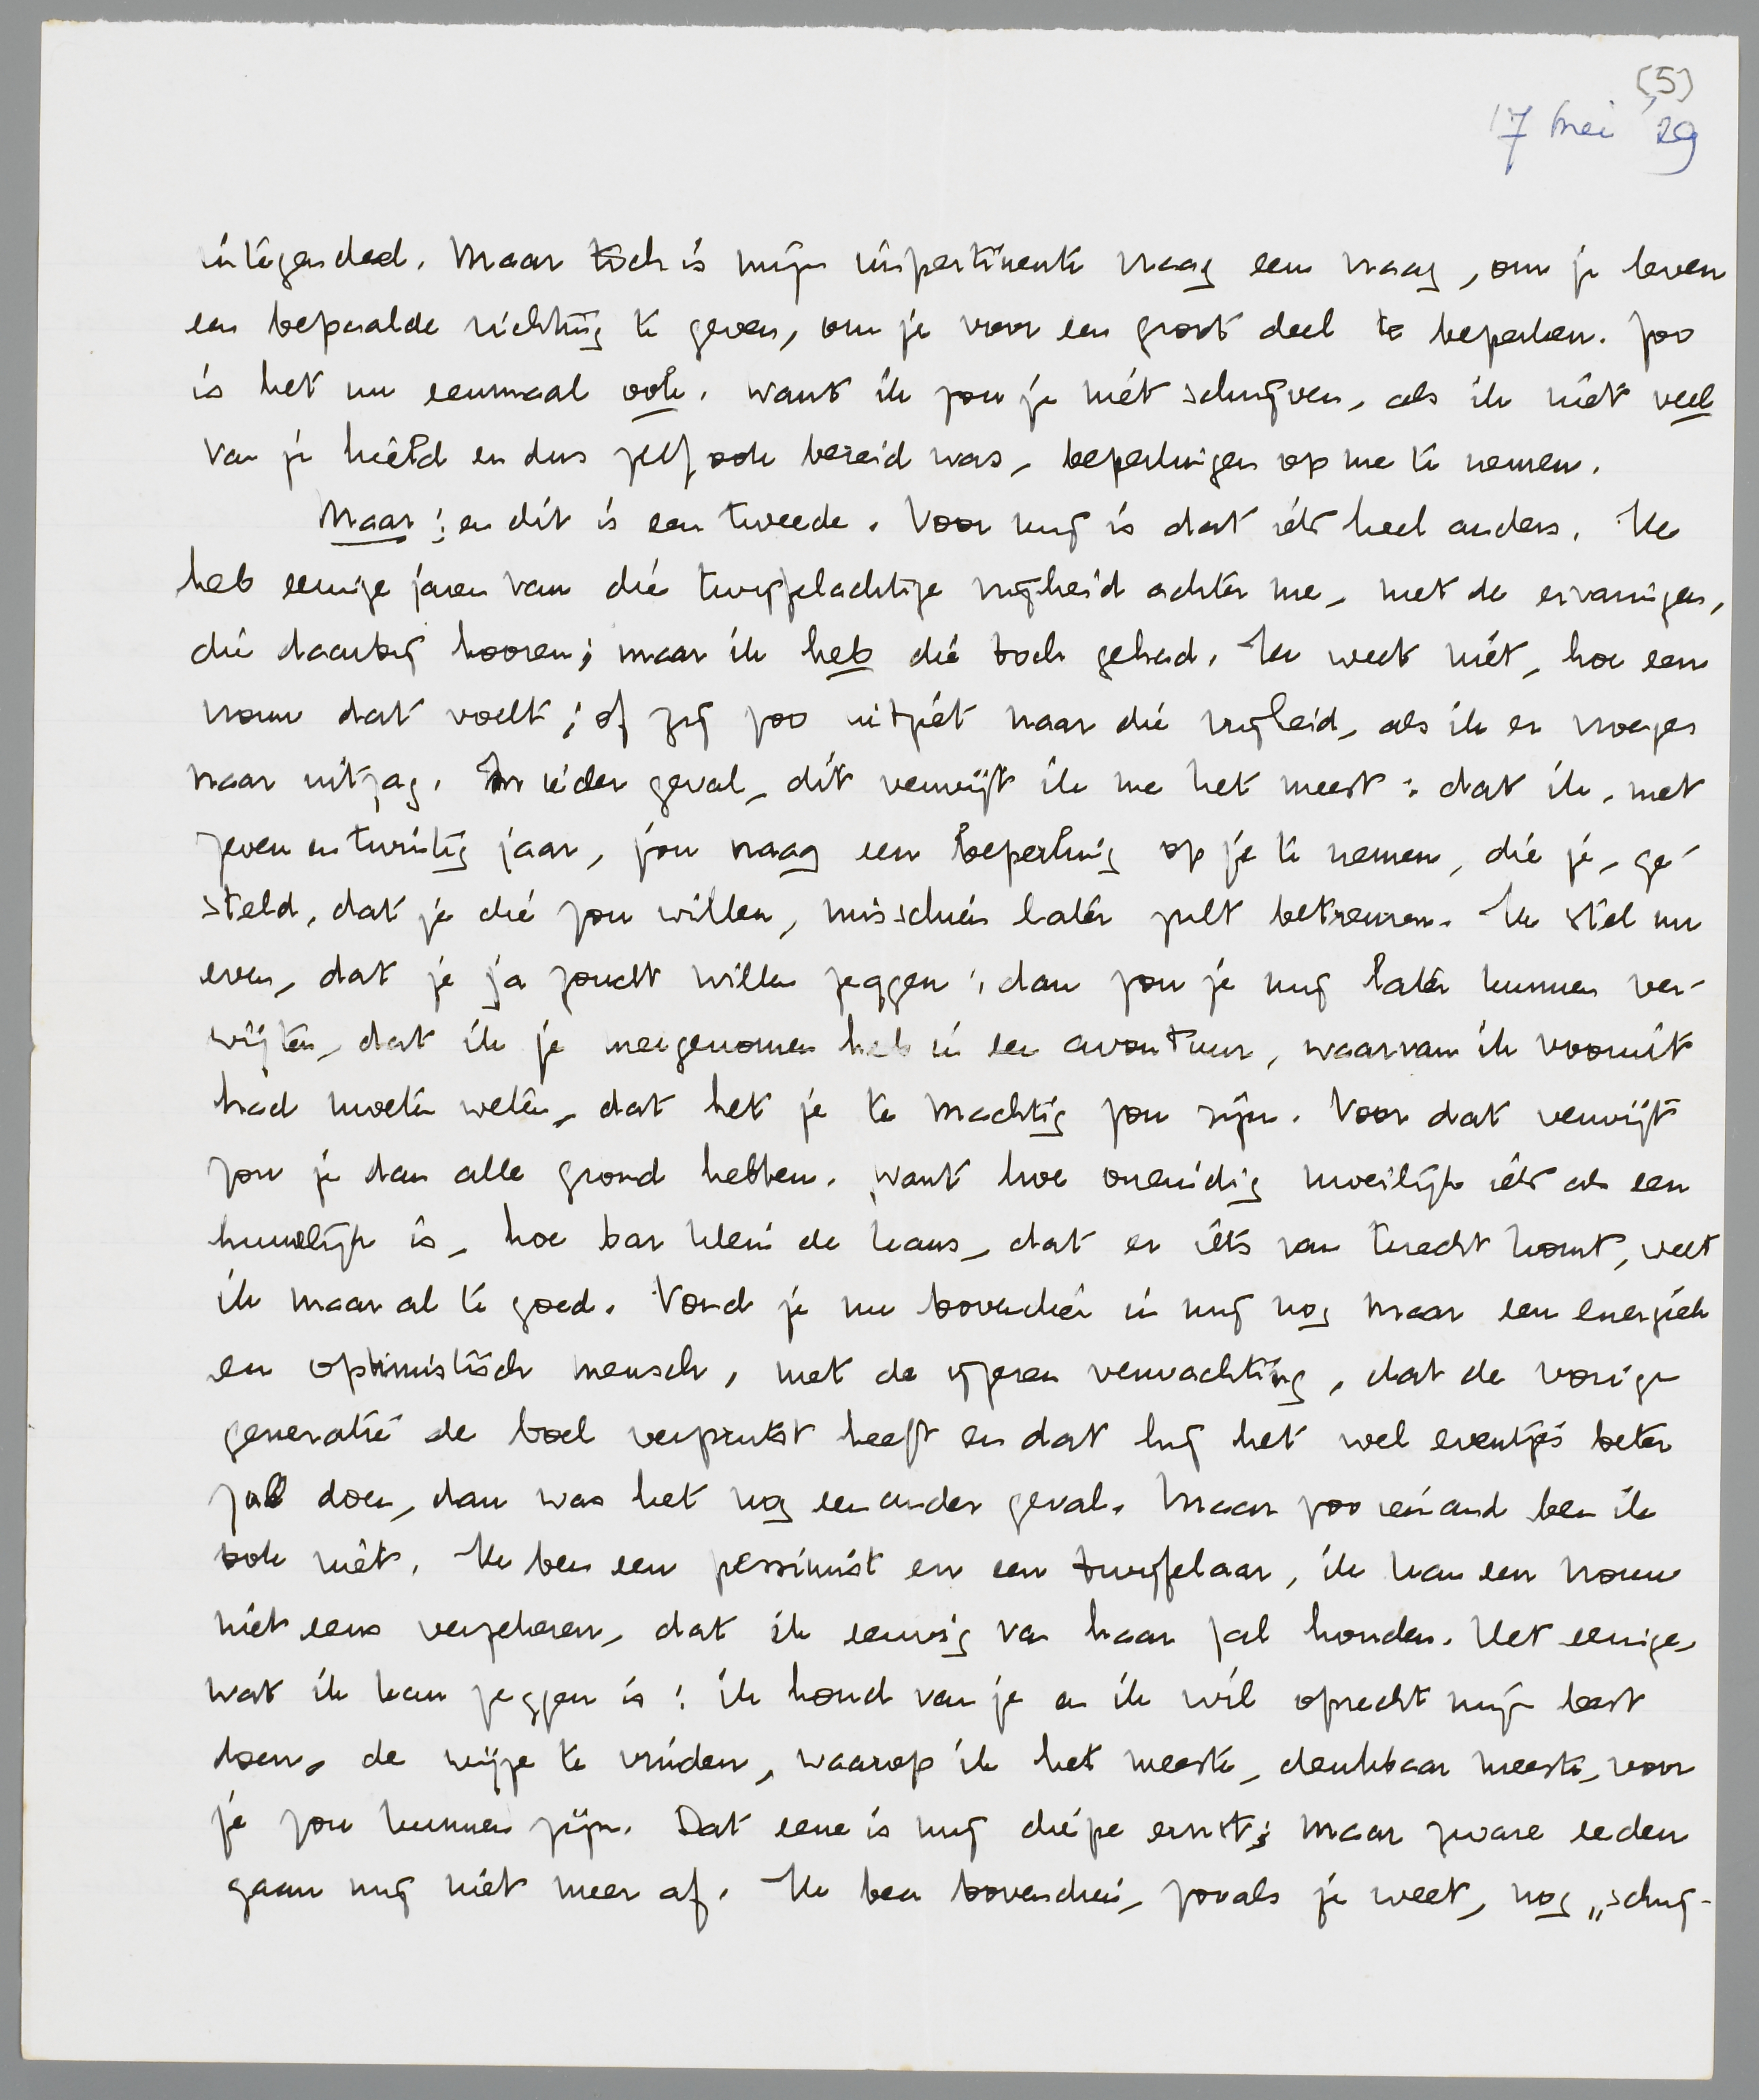 (5)
17 Mei '29
integendeel. Maar toch is mijn impertinente vraag een vraag, om je leven
een bepaalde richting te geven, om je voor een groot deel te beperken. Zoo
is het nu eenmaal ook. Want ik zou je niet schrijven, als ik niet veel
van je hield en dus zelf ook bereid was, beperkingen op me te nemen.
Maar: en dit is een tweede. Voor mij is dat iets heel anders. Ik
heb eenige jaren van die twijfelachtige vrijheid achter me, met de ervaringen,
die daarbij hooren; maar ik heb die toch gehad. Ik weet niet, hoe een
vrouw dat voelt; of zij zoo uitziet naar die vrijheid, als ik er vroeger
naar uitzag. In ieder geval, dit verwijt ik me het meest: dat ik, met
zeven en twintig jaar, jou vraag een beperking op je te nemen, die je, ge-
steld, dat je die zou willen, misschien later zult betreuren. Ik stel nu
even, dat je ja zoudt willen zeggen; dan zou je mij later kunnen ver-
wijten, dat ik je meegenomen heb in een avontuur, waarvan ik vooruit
had moeten weten, dat het je te machtig zou zijn. Voor dat verwijt
zou je dan alle grond hebben. Want hoe oneindig moeilijk iets als een
huwelijk is, hoe bar klein de kans, dat er iets van terecht komt, weet
ik maar al te goed. Vond je nu bovendien in mij nog maar een energiek
en optimistisch mensch, met de ijzeren verwachting, dat de vorige
generatie de boel verprutst heeft en dat hij het wel eventjes beter
zal doen, dan was het nog een ander geval. Maar zoo iemand ben ik
ook niet. Ik ben een pessimist en een twijfelaar, ik kan een vrouw
niet eens verzekeren, dat ik eeuwig van haar zal houden. Het eenige,
wat ik kan zeggen is: ik houd van je en ik wil oprecht mijn best
doen, de wijze te vinden, waarop ik het meeste, denkbaar meeste, voor
je zou kunnen zijn. Dat eene is mij diepe ernst; maar zware eeden
gaan mij niet meer af. Ik ben bovendien, zooals je weet, nog „schrij-